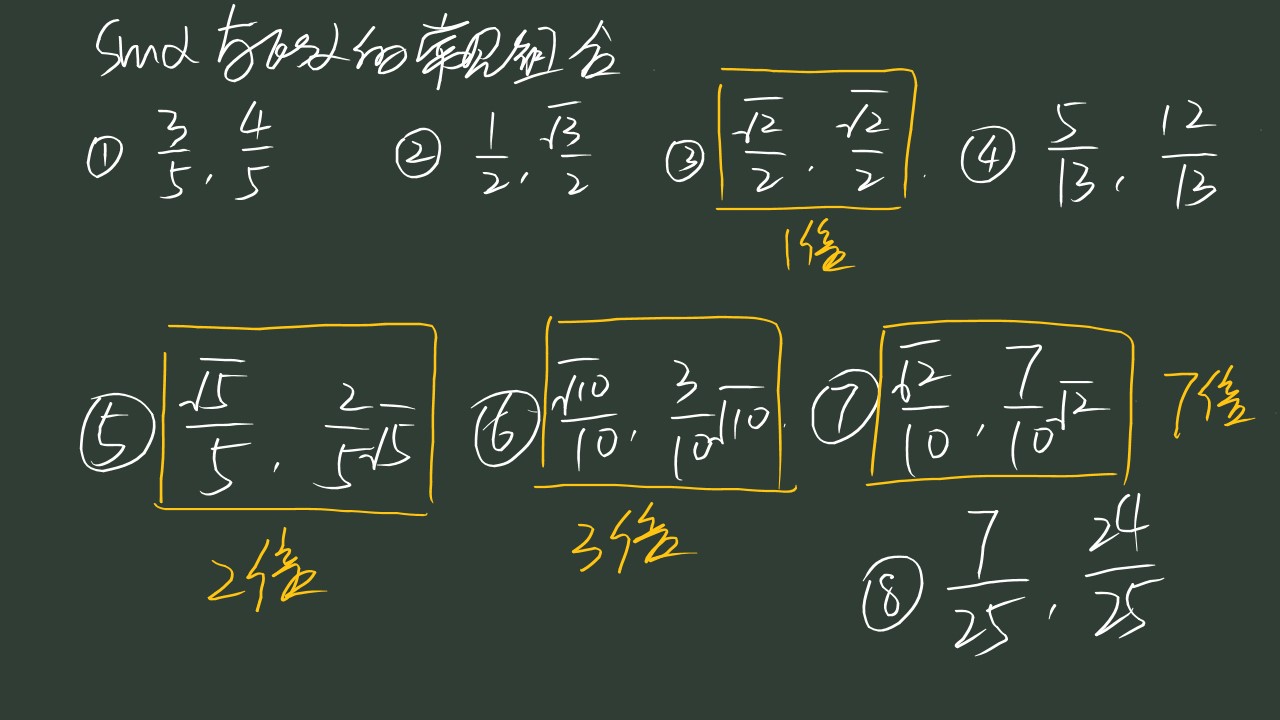 sinα与cosα的常见组合
① 3/5, 4/5 ② 1/2, √3/2 ③ √2/2, √2/2 ④ 5/13, 12/13
1倍
⑤ √5/5, 2/5√5 ⑥ √10/10, 3/10√10 ⑦ √2/10, 7/10√2 7倍
2倍 3倍
⑧ 7/25, 24/25